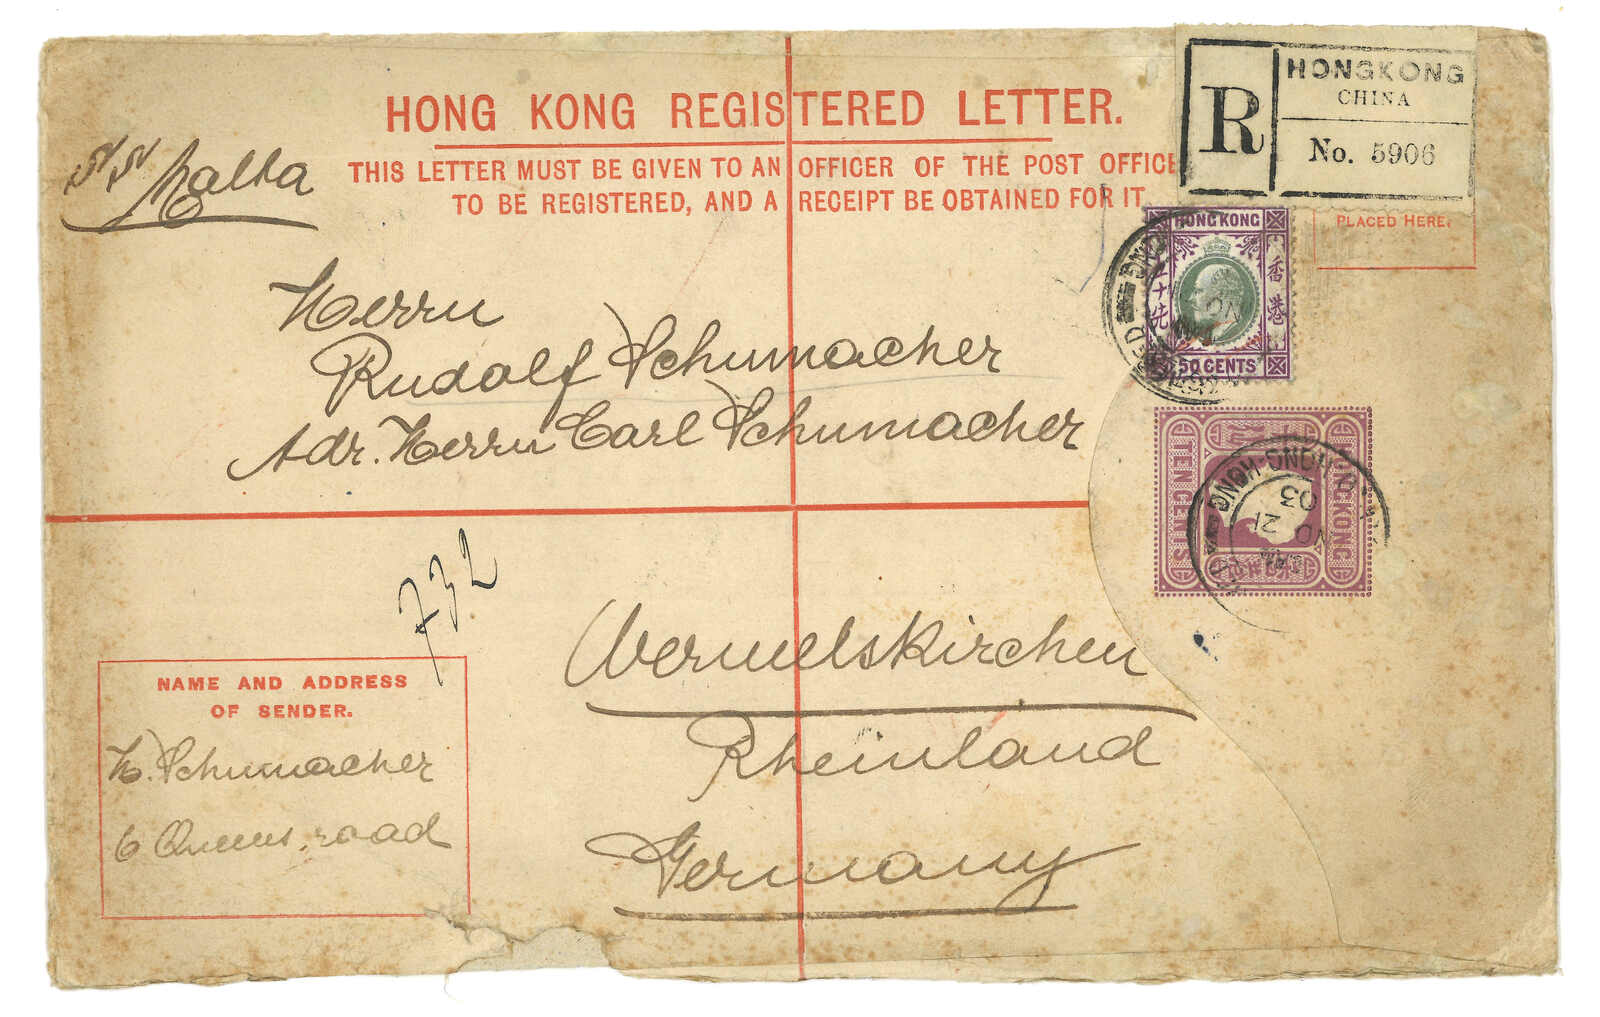 HONG KONG REGISTERED LETTER.
THIS LETTER MUST BE GIVEN TO AN OFFICER OF THE POST OFFICE
TO BE REGISTERED, AND A RECEIPT BE OBTAINED FOR IT
R
HONGKONG
CHINA
No. 5906
PLACED HERE.
SS Malta
HONG KONG
香港
50 CENTS
Herrn
Rudolf Schumacher
Adr. Herrn Carl Schumacher
HONGKONG
TEN CENTS
HONG-KONG
NO 21
03
732
Wermelskirchen
Rheinland
Germany
NAME AND ADDRESS
OF SENDER.
H. Schumacher
6 Queens road